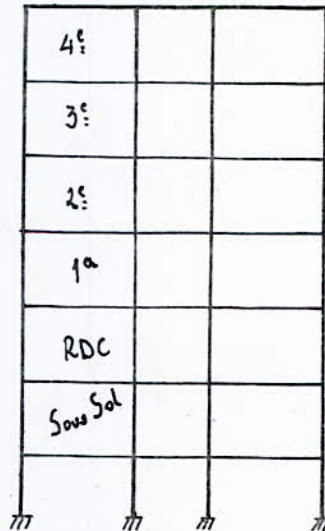 4e
3e
2e
1a
RDC
Sous Sol